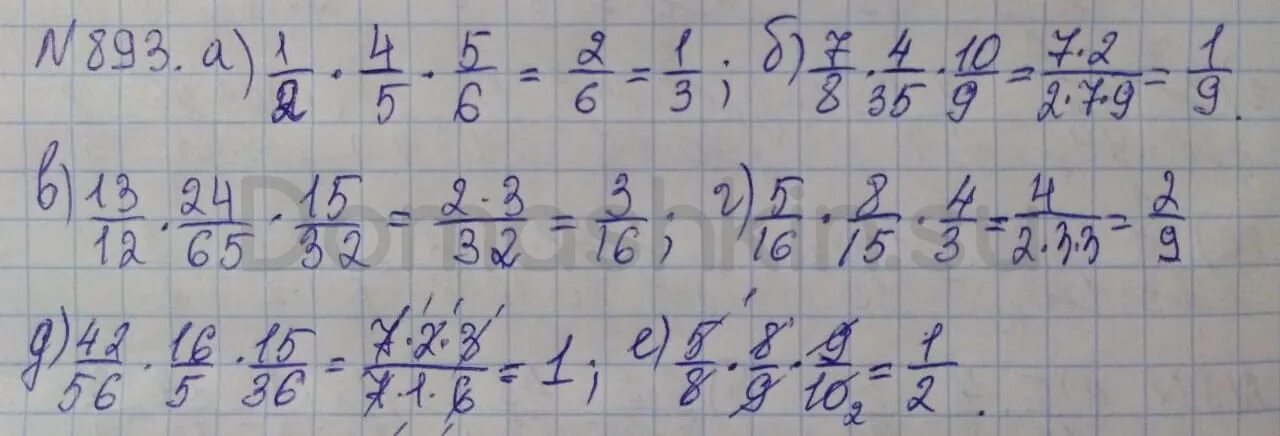 N 893. а) 1/2 · 4/5 · 5/6 = 2/6 = 1/3 ; б) 7/8 · 4/35 · 10/9 = 7·2/2·7·9 = 1/9.
в) 13/12 · 24/65 · 15/32 = 2·3/32 = 3/16 ; г) 5/16 · 8/15 · 4/3 = 4/2·3·3 = 2/9
д) 42/56 · 16/5 · 15/36 = 7·2·3/7·1·6 = 1 ; е) 5/8 · 8/9 · 9/10 2 = 1/2.
Domashkin.su